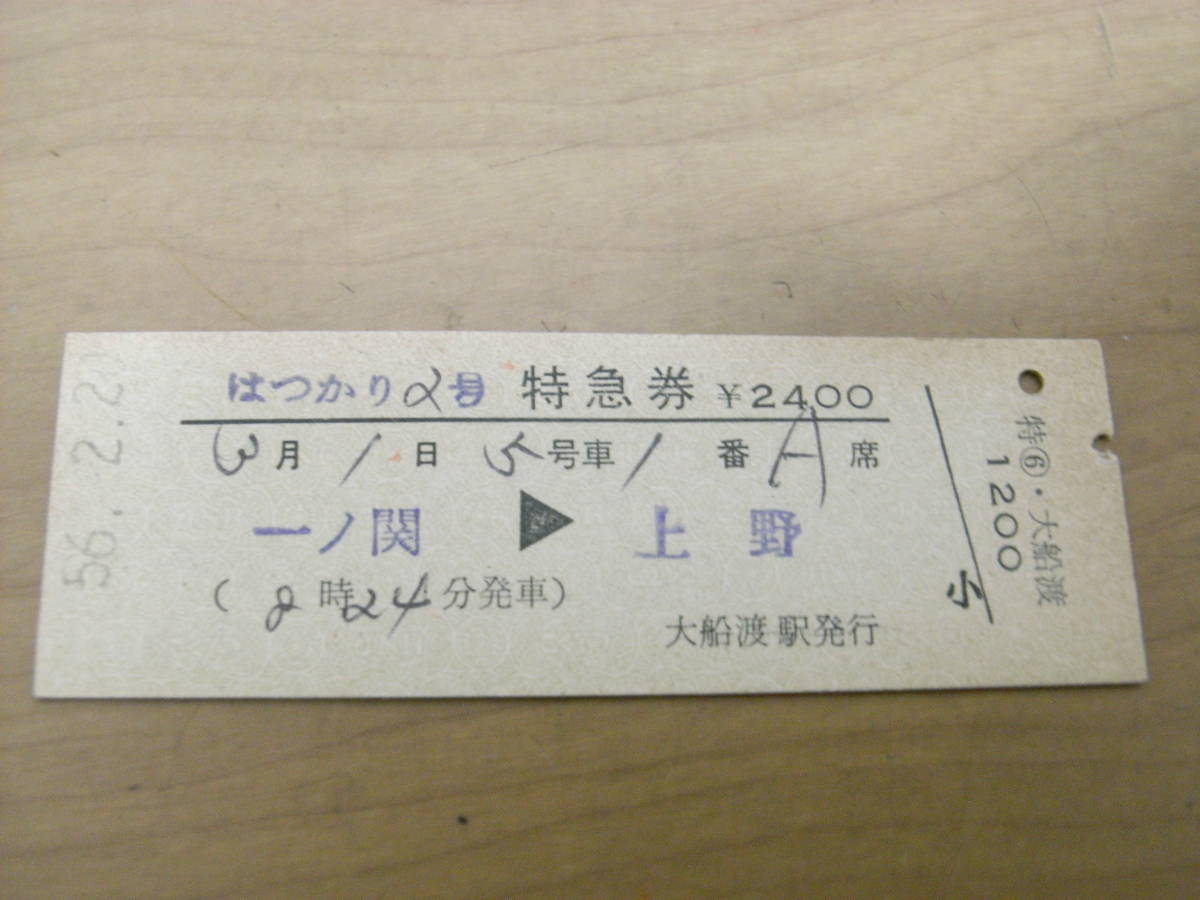 はつかり2号 特急券 ¥2400
3月1日 5号車1番A席
一ノ関 ▶ 上野
(8時24分発車)
大船渡駅発行
小
特⑥・大船渡
1200
56.-2.2